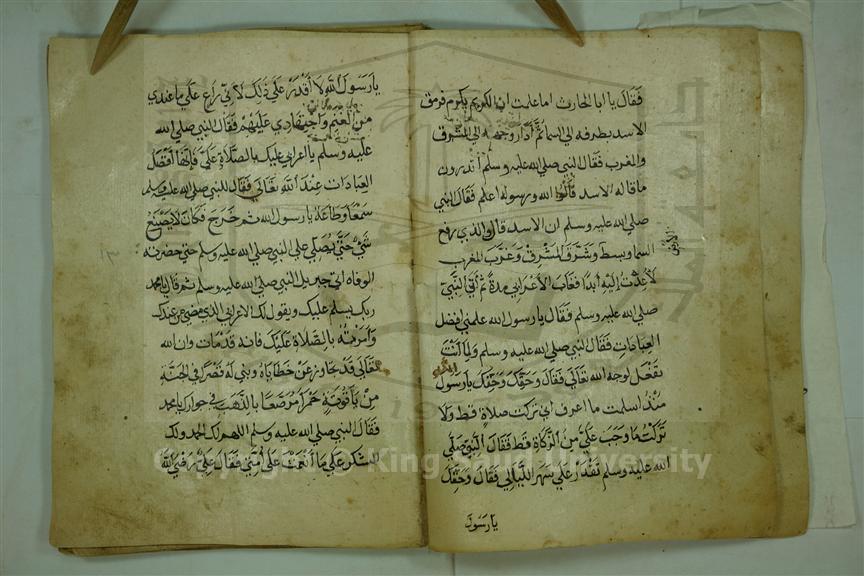 فقال يا ابا الحارث اما علمت ان الكريم يكرم فرمق
الاسد بطرفه الي السما ثم أدار وجهه الي المشرق
والمغرب فقال النبي صلي الله عليه وسلم أتدرون
ما قاله الاسد قالوا الله ورسوله اعلم فقال النبي
صلي الله عليه وسلم ان الاسد قال والذي رفع
السما وبسط الأرض وشرق المشرق وغرب المغرب
لا عدت إليه أبدا فغاب الأعرابي مدة ثم أتي النبي
صلي الله عليه وسلم فقال يا رسول الله علمني افضل
العبادات فقال النبي صلي الله عليه وسلم ولما أنت
تفعل لوجه الله تعالي فقال وحقك وحقك يا رسول
منذ اسلمت ما اعرف اني تركت صلاة قط ولا
تركت ما وجب علي من الزكاة قط فقال النبي صلي
الله عليه وسلم تقدر علي سهر الليالي فقال وحقك
يا رسول
يا رسول الله لا أقدر علي ذلك لاني راع علي ما عندي
من الغنم واجتهادي عليهم فقال النبي صلي الله
عليه وسلم يا اعرابي عليك بالصلاة علي فإنها أفضل
العبادات عند الله تعالي فقال للنبي صلي الله عليه وسلم
سمعا وطاعة يا رسول الله ثم خرج فكان لا يصنع
شئ حتي يصلي علي النبي صلي الله عليه وسلم حتي حضرته
الوفاه اتي جبريل النبي صلي الله عليه وسلم ثم قال يا محمد
ربك يسلم عليك ويقول لك الاعرابي الذي مضي من عندك
وأمرته بالصلاة عليك فانه قد مات وان الله
تعالي قد تجاوز عن خطاياه وبني له قصرا في الجنة
من ياقوتة حمرا مرصعا بالذهب في جوارك يا محمد
فقال النبي صلي الله عليه وسلم اللهم لك الحمد ولك
الشكر علي ما أنعمت علي أمتي فقال علي رضي الله
Copyright © King Saud University